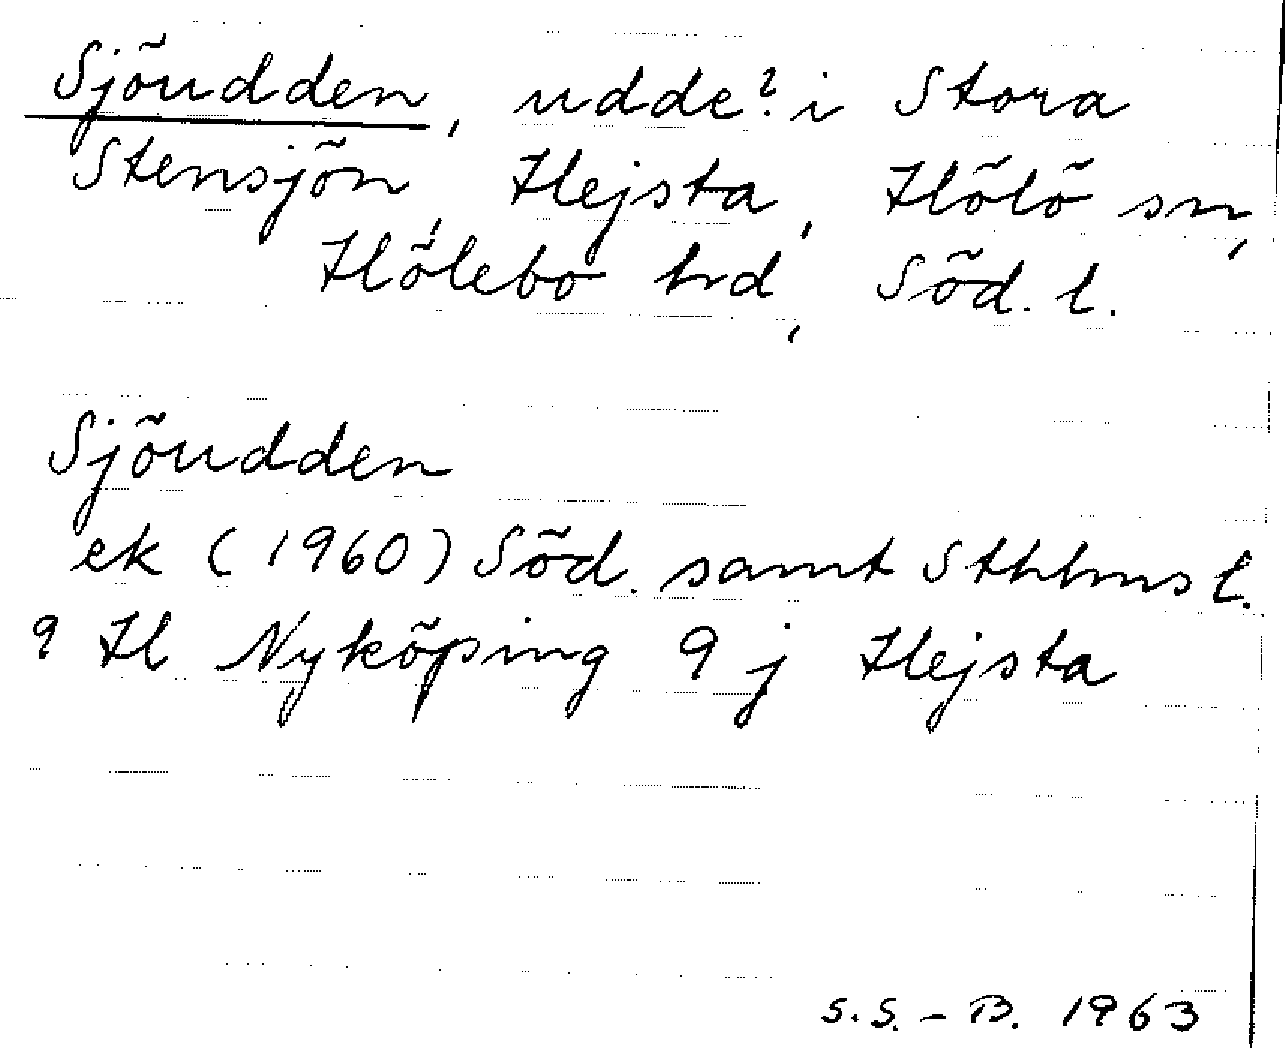 Sjöudden, udde? i Stora
Stensjön, Hejsta, Hölö sn,
Hölebo hrd, Söd. l.
Sjöudden
ek (1960) Söd. samt Sthlms l.
9 H Nyköping 9 j Hejsta
S.S.-B. 1963